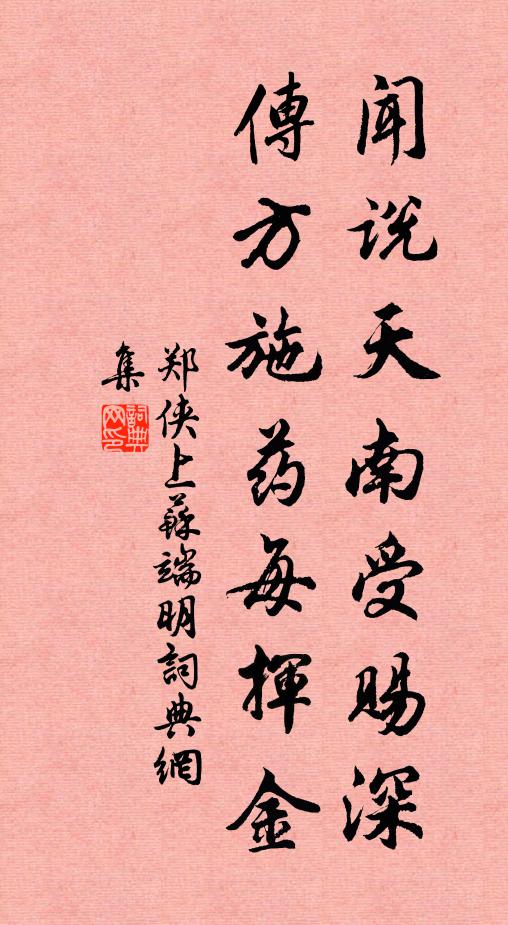 闻说天南受赐深
傳方施药每揮金
郑侠上蘇端明詞典網
集
詞典
网印